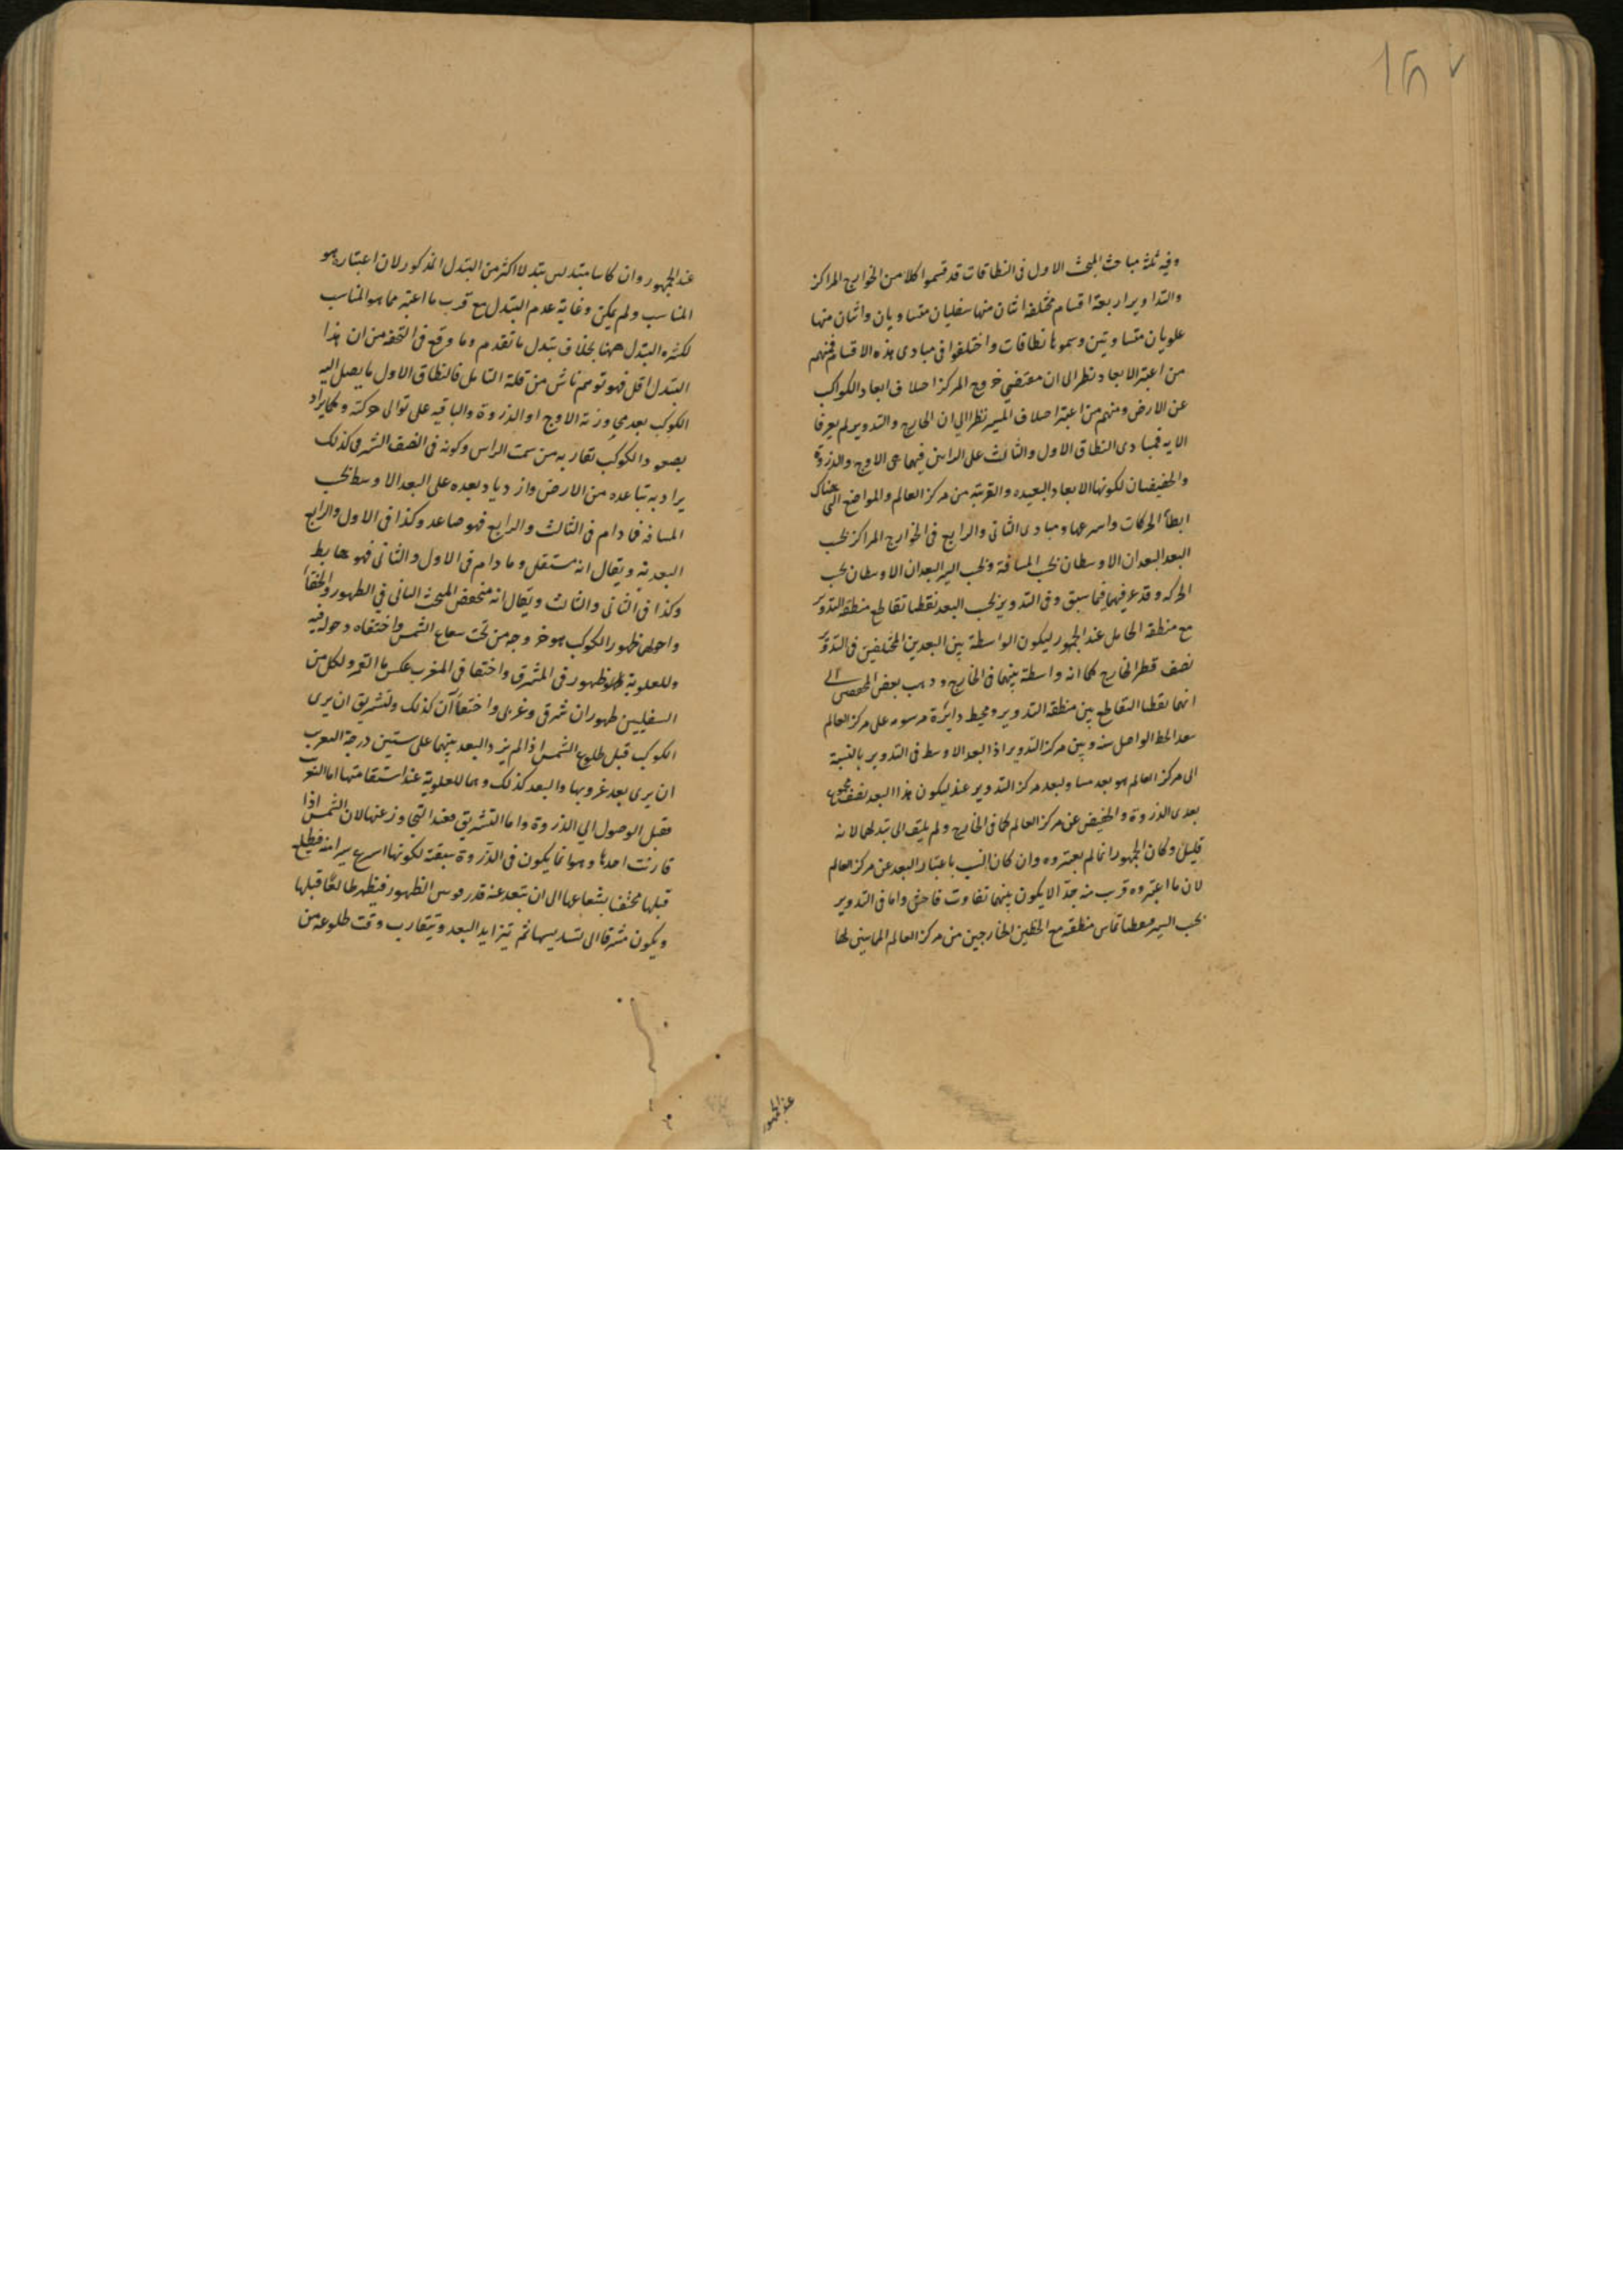 وفيه ثلثة مباحث المبحث الاول فى النطاقات قد قسموا كلا من الخوارج المراكز
والتداوير اربعة اقسام مختلفة اثنان منها سفليان متساويان واثنان منها
علويان متساويتين وسموها نطاقات واختلفوا فى مبادى هذه الاقسام فمنهم
من اعتبر الابعاد نظرا الى ان مقتضى خروج المركز اختلاف ابعاد الكواكب
عن الارض ومنهم من اعتبر اختلاف المسير نظرا الى ان الخارج والتدوير لم يعرفا
الا به فمبادى النطاق الاول والثالث على الراس فيهما هى الاوج والذروة
والحضيضان لكونها الابعاد البعيده والقريبة من مركز العالم والمواضع التى هناك
ابطأ الحركات واسرعها ومبادى الثانى والرابع فى الخوارج المراكز بحسب
البعد البعدان الاوسطان بحسب المسافة وبحسب السير البعدان الاوسطان بحسب
الحركه وقد عرفتهما فيما سبق وفى التدوير بحسب البعد نقطتا تقاطع منطقة التدوير
مع منطقة الحامل عند الجمهور ليكون الواسطة بين البعدين المختلفين فى التدوير
نصف قطر الخارج كما انه واسطة بينهما فى الخارج وذهب بعض المحققين الى
انهما نقطتا التقاطع بين منطقة التدوير ومحيط دائرة مرسومه على مركز العالم
ببعد الخط الواصل بينه وبين مركز التدوير اذ البعد الاوسط فى التدوير بالنسبة
الى مركز العالم هو بعد مساو لبعد مركز التدوير عنه ليكون هذا البعد نصف مجموع
بعدى الذروة والحضيض عن مركز العالم كما فى الخارج ولم يلتفت الى تبدلهما لانه
قليل وكان الجمهور انما لم يعتبروه وان كان انسب باعتبار البعد عن مركز العالم
لان ما اعتبروه قريب منه جدا لا يكون بينهما تفاوت فاحش واما فى التدوير
بحسب السير فنقطتا تماس منطقته مع الخطين الخارجين من مركز العالم المماسين لها
عند الجمهور
عند الجمهور وان كانا متبدلين تبدلا اكثر من التبدل المذكور لان اعتبار ما هو
المناسب ولم يمكن رعاية عدم التبدل مع قرب ما اعتبر مما هو المناسب
لكثرة التبدل ههنا بخلاف تبدل ما تقدم وما وقع فى التحفه من ان هذا
التبدل اقل فهو توهم ناش من قلة التامل فالنطاق الاول ما يصل اليه
الكوكب بعد مجاوزته الاوج او الذروة والباقيه على توالى حركته وكما يراد
بصعود الكوكب تقاربه من سمت الراس وكونه فى النصف الشرقى كذلك
يراد به تباعده من الارض وازدياد بعده على البعد الاوسط بحسب
المسافة فما دام فى الثالث والرابع فهو صاعد وكذا فى الاول والرابع
البعديه ويقال انه مستعل وما دام فى الاول والثانى فهو هابط
وكذا فى الثانى والثالث ويقال انه منخفض المبحث الثانى فى الظهور والخفاء
واحوالهما ظهور الكوكب هو خروجه من تحت شعاع الشمس واختفاه دخوله فيه
وللعلوية ظهور فى المشرق واختفا فى المغرب عكس ما للقمر ولكل من
السفليين ظهوران شرقى وغربى واختفاآن كذلك والتشريق ان يرى
الكوكب قبل طلوع الشمس اذا لم يزد البعد بينهما على ستين درجة والتغريب
ان يرى بعد غروبها والبعد كذلك وهما للعلوية عند استقامتها اما التغريب
فقبل الوصول الى الذروة واما التشريق فعند التجاوز عنها لان الشمس اذا
قارنت احدها وهو انما يكون فى الذروة سبقته لكونها اسرع سيرا منه فيطلع
قبلها مختفيا بشعاعها الى ان تبعد عنه قدر قوس الظهور فيظهر طالعا قبلها
ويكون مشرقا الى تسديسها ثم تتزايد البعد ويتقارب وقت طلوعه من